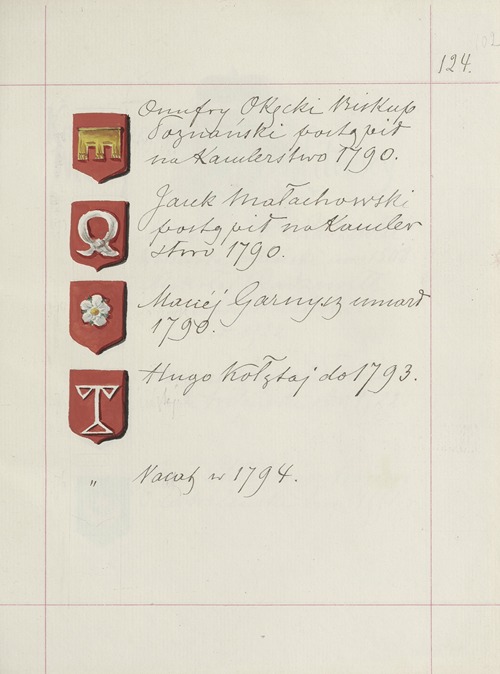 124.
Onufry Okęcki Biskup
Poznański postąpił
na Kanclerstwo 1790.
Jacek Małachowski
postąpił na Kancler
stwo 1790.
Maciéj Garnysz umarł
1790.
Hugo Kołłątaj do 1793.
" Vacat w 1794.